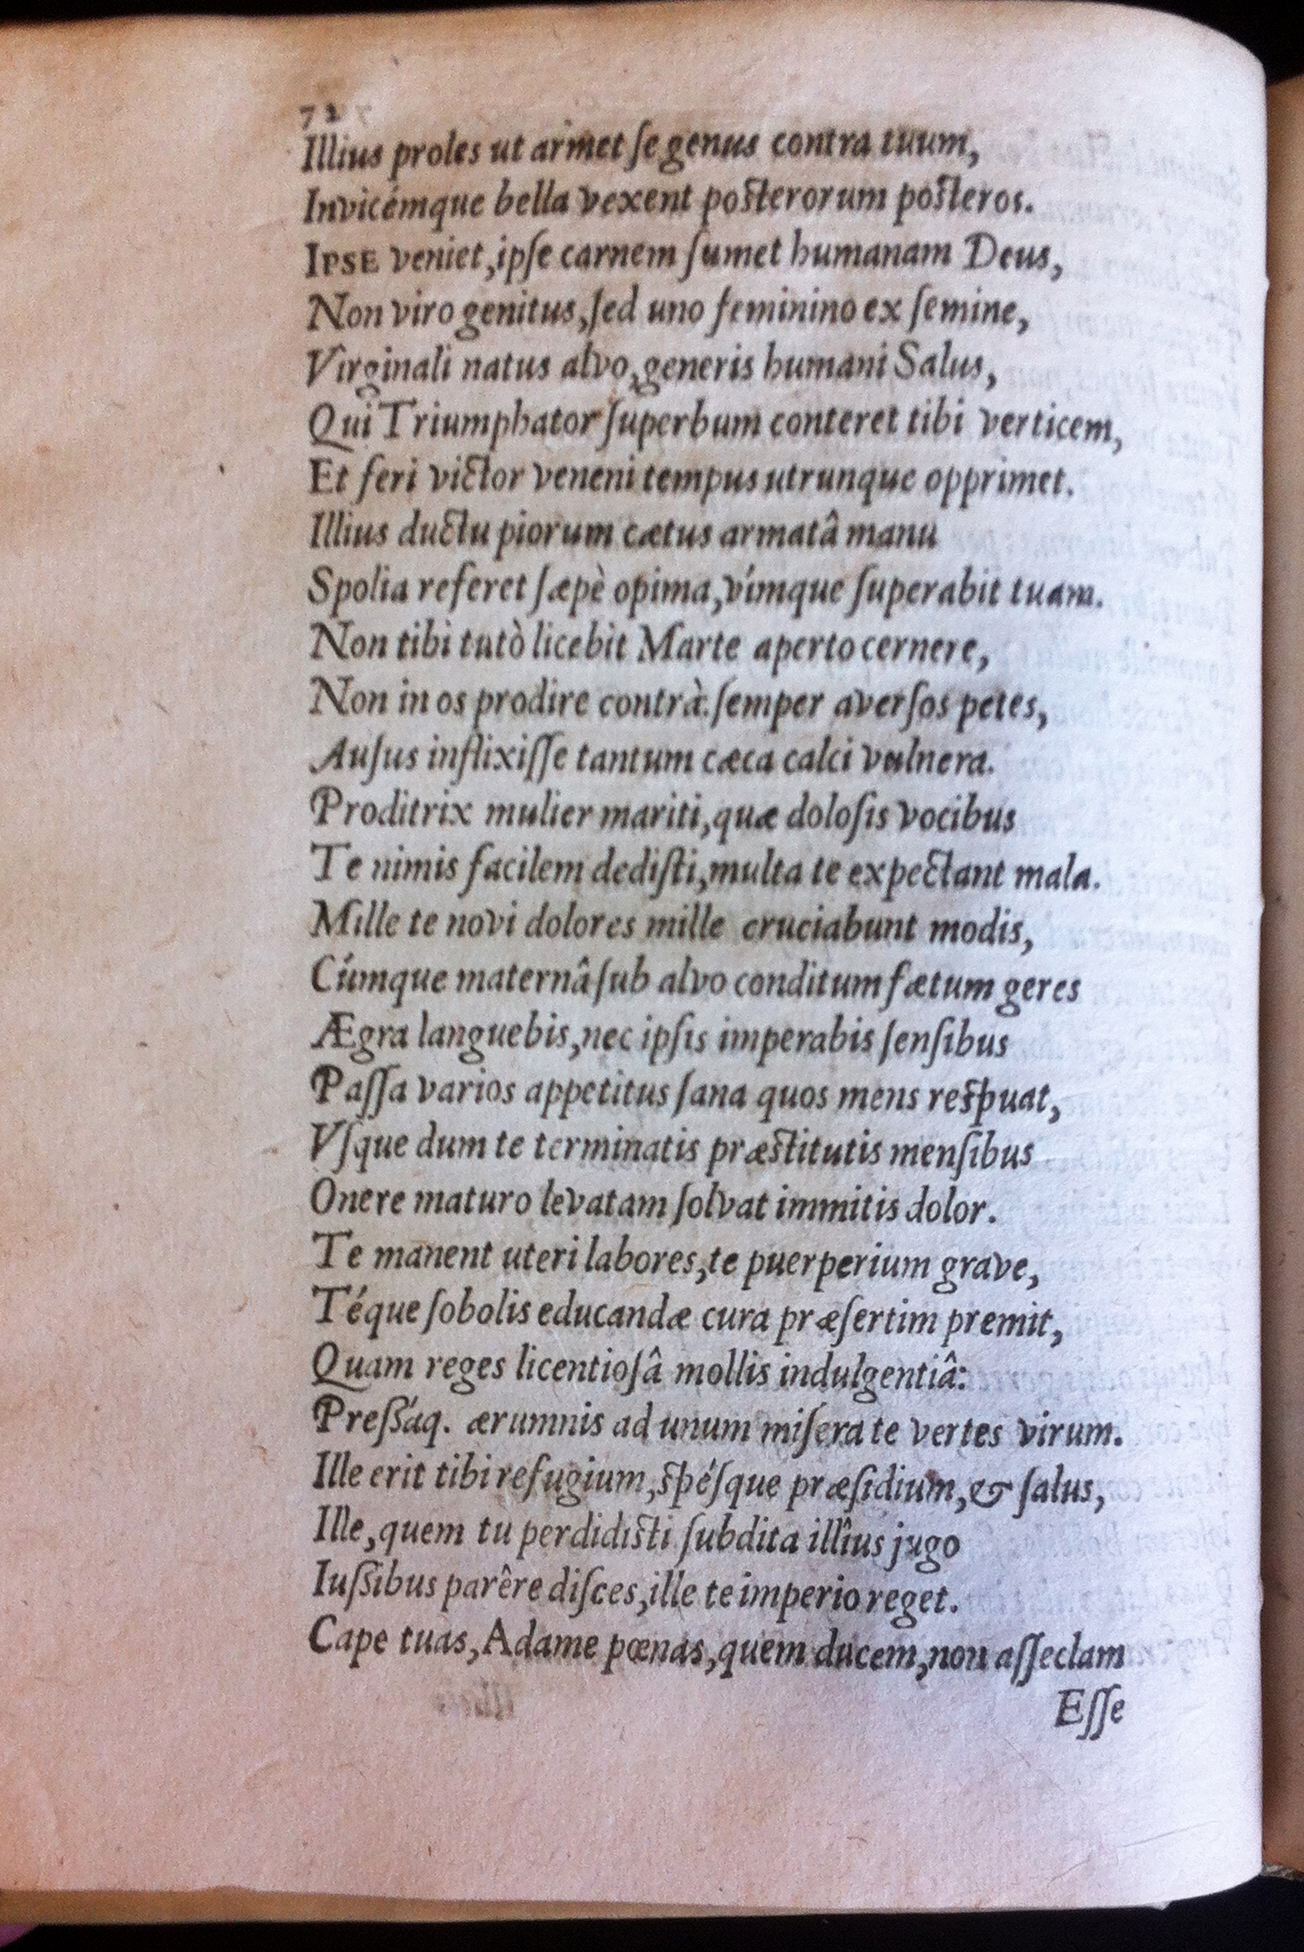 72
Illius proles ut armet ſe genus contra tuum,
Invicémque bella vexent poſterorum poſteros.
IPSE veniet, ipſe carnem ſumet humanam Deus,
Non viro genitus, ſed uno feminino ex ſemine,
Virginali natus alvo, generis humani Salus,
Qui Triumphator ſuperbum conteret tibi verticem,
Et feri victor veneni tempus utrunque opprimet.
Illius ductu piorum cætus armatâ manu
Spolia referet ſæpè opima, vímque ſuperabit tuam.
Non tibi tutò licebit Marte aperto cernere,
Non in os prodire contrà: ſemper averſos petes,
Auſus inflixiſſe tantum cæca calci vulnera.
Proditrix mulier mariti, quæ doloſis vocibus
Te nimis facilem dediſti, multa te expectant mala.
Mille te novi dolores mille cruciabunt modis,
Cúmque maternâ ſub alvo conditum fætum geres
Ægra languebis, nec ipſis imperabis ſenſibus
Paſſa varios appetitus ſana quos mens reſpuat,
Vſque dum te terminatis præſtitutis menſibus
Onere maturo levatam ſolvat immitis dolor.
Te manent uteri labores, te puerperium grave,
Téque ſobolis educandæ cura præſertim premit,
Quam reges licentioſâ mollis indulgentiâ:
Preſsáq. ærumnis ad unum miſera te vertes virum.
Ille erit tibi refugium, ſpéſque præſidium, & ſalus,
Ille, quem tu perdidiſti ſubdita illîus jugo
Iuſsibus parêre diſces, ille te imperio reget.
Cape tuas, Adame pœnas, quem ducem, non aſſeclam
Eſſe